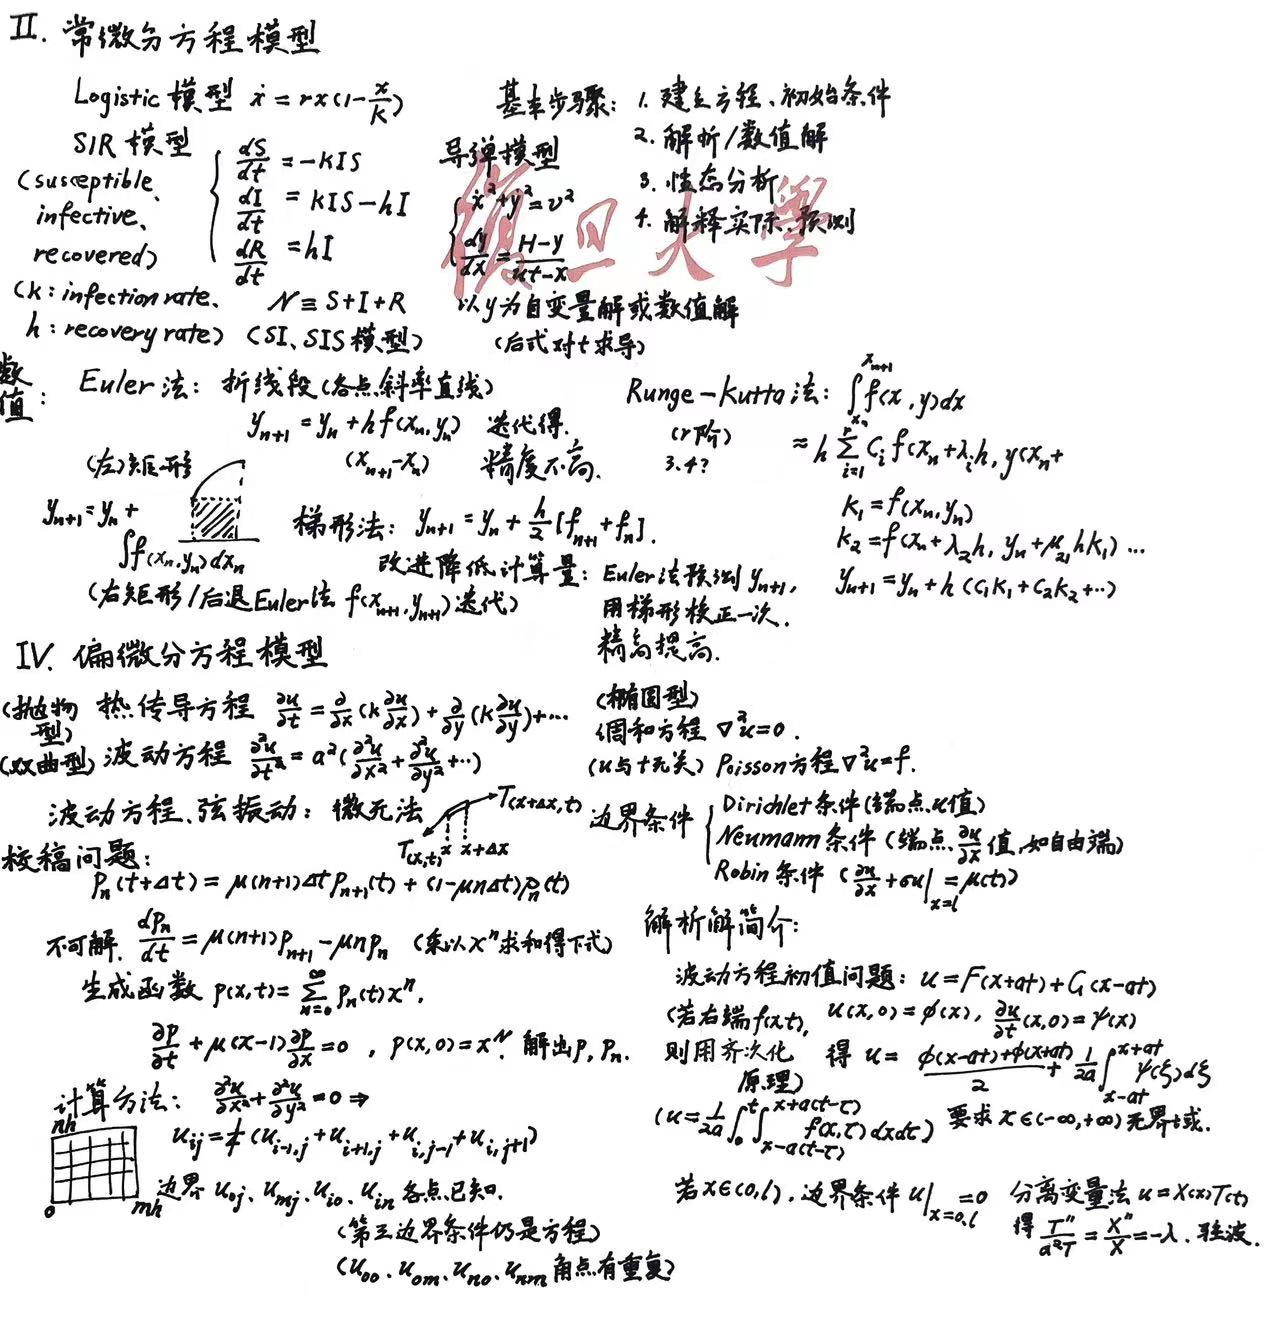 II. 常微分方程模型
Logistic 模型 ẋ = rx(1-x/K)
SIR 模型
(susceptible、
infective、
recovered)
dS/dt = -kIS
dI/dt = kIS-hI
dR/dt = hI
(k: infection rate、
h: recovery rate)
N ≡ S+I+R
(SI、SIS模型)
基本步骤: 1. 建立方程、初始条件
2. 解析/数值解
3. 性态分析
4. 解释实际、预测
导弹模型
ẋ²+ẏ²=v²
dy/dx = (H-y)/(ut-x)
以y为自变量解或数值解
(后式对t求导)
復旦大學
数值:
Euler法: 折线段(各点斜率直线)
y_{n+1} = y_n + h f(x_n, y_n) 迭代得.
(x_{n+1}-x_n) 精度不高.
(左)矩形
y_{n+1} = y_n +
∫f(x_n, y_n)dx_n
梯形法: y_{n+1} = y_n + h/2 [f_{n+1}+f_n].
改进降低计算量: Euler法预测y_{n+1},
用梯形校正一次.
精高提高.
(右矩形/后退Euler法 f(x_{n+1}, y_{n+1})迭代)
Runge-Kutta法: ∫_{x_n}^{x_{n+1}} f(x, y)dx
(r阶)
3.4?
≈ h Σ_{i=1}^{r} C_i f(x_n+λ_i h, y(x_n+
k₁ = f(x_n, y_n)
k₂ = f(x_n+λ₂h, y_n+μ₂₁hk₁) ...
y_{n+1} = y_n + h (c₁k₁+c₂k₂+...)
IV. 偏微分方程模型
(抛物型) 热传导方程 ∂u/∂t = ∂/∂x (k ∂u/∂x) + ∂/∂y (k ∂u/∂y) + ...
(双曲型) 波动方程 ∂²u/∂t² = a²(∂²u/∂x² + ∂²u/∂y² + ...)
(椭圆型)
调和方程 ∇²u=0.
(u与t无关) Poisson方程 ∇²u=f.
波动方程、弦振动: 微元法
T(x+Δx, t)
T(x,t) x x+Δx
边界条件
Dirichlet条件(端点u值)
Neumann条件 (端点 ∂u/∂x 值,如自由端)
Robin条件 (∂u/∂x+σu|_{x=l} = μ(t))
校稿问题:
P_n(t+Δt) = μ(n+1)Δt P_{n+1}(t) + (1-μnΔt)P_n(t)
不可解. dP_n/dt = μ(n+1)P_{n+1} - μnP_n (乘以xⁿ求和得下式)
生成函数 p(x,t) = Σ_{n=0}^{∞} P_n(t)xⁿ.
∂P/∂t + μ(x-1)∂P/∂x = 0 , p(x,0) = x^N. 解出p, P_n.
计算方法: ∂²u/∂x² + ∂²u/∂y² = 0 ⇒
nh
0 mh
u_{ij} = ¼ (u_{i-1,j}+u_{i+1,j}+u_{i,j-1}+u_{i,j+1})
边界 u_{0j}、u_{mj}、u_{i0}、u_{in} 各点已知.
(第三边界条件仍是方程)
(u_{00}、u_{0m}、u_{n0}、u_{nm} 角点有重复)
解析解简介:
波动方程初值问题: u = F(x+at) + G(x-at)
(若右端f(x,t), u(x,0) = φ(x), ∂u/∂t(x,0) = ψ(x)
则用齐次化原理) 得 u = (φ(x-at)+φ(x+at))/2 + 1/2a ∫_{x-at}^{x+at} ψ(ξ)dξ
(u = 1/2a ∫₀ᵗ∫_{x-a(t-τ)}^{x+a(t-τ)} f(x,τ)dxdτ) 要求 x∈(-∞,+∞)无界域.
若x∈(0,l), 边界条件 u|_{x=0,l} = 0 分离变量法 u = X(x)T(t)
得 T''/a²T = X''/X = -λ. 驻波.